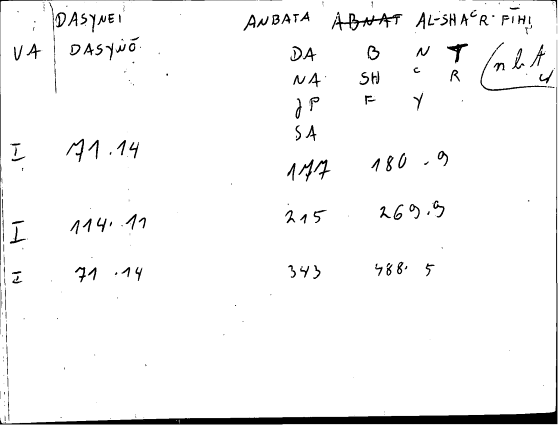 DASYNEI ANBATA ABNAT AL-SHAᶜR FĪHI
VA DASYNŌ DA B N T (n b A
NA SH ᶜ R
JP F Y
SA
I 71.14 177 180.9
I 114.11 215 269.9
I 71.14 343 488.5